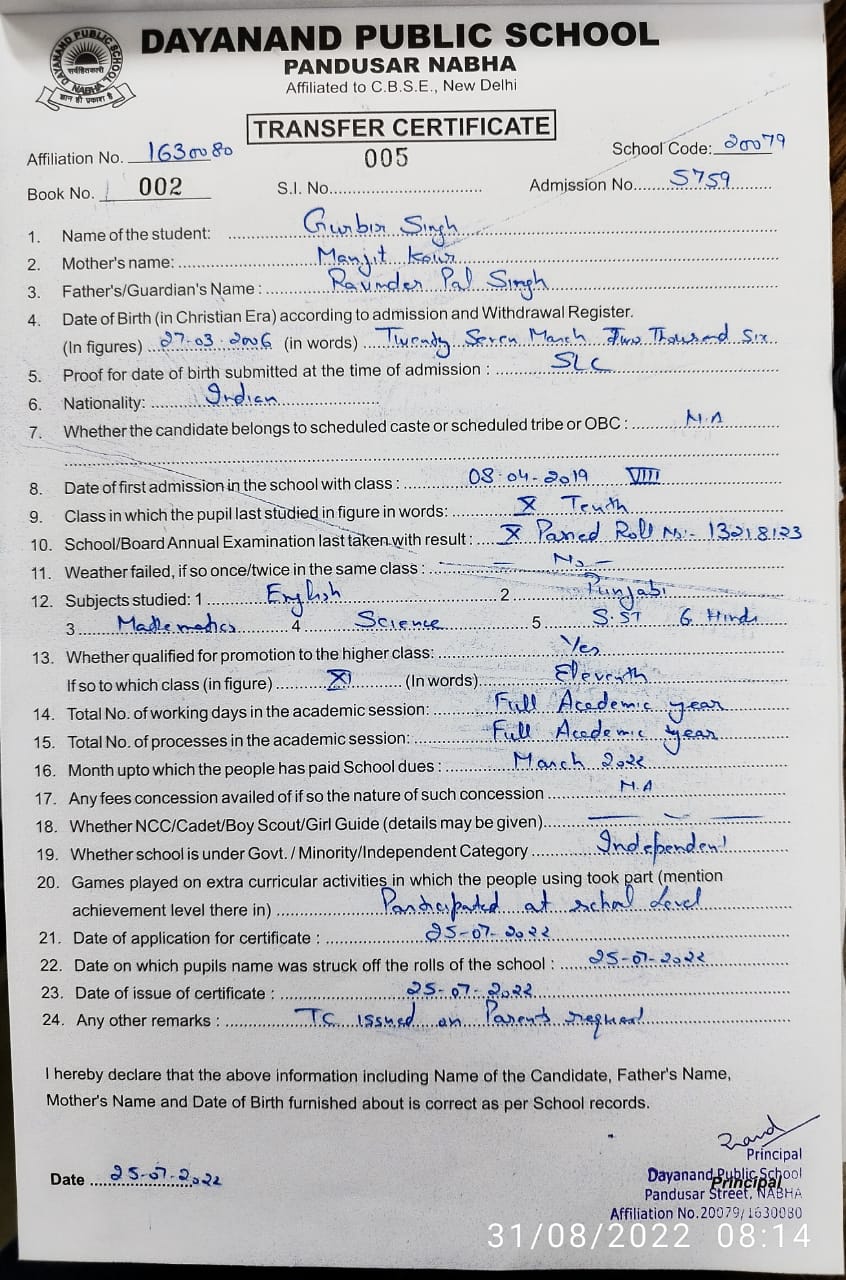 DAYANAND PUBLIC SCHOOL
PANDUSAR NABHA
Affiliated to C.B.S.E., New Delhi
DAYANAND PUBLIC SCHOOL
NABHA
TRANSFER CERTIFICATE
Affiliation No. 1630080 005 School Code: 20079
Book No. 002 S.I. No. Admission No. 5759
1. Name of the student: Gurbir Singh
2. Mother's name: Manjit Kaur
3. Father's/Guardian's Name : Ravinder Pal Singh
4. Date of Birth (in Christian Era) according to admission and Withdrawal Register.
(In figures) 27-03-2006 (in words) Twenty Seven March Two Thousand Six
5. Proof for date of birth submitted at the time of admission : SLC
6. Nationality: Indian
7. Whether the candidate belongs to scheduled caste or scheduled tribe or OBC : N.A
8. Date of first admission in the school with class : 08-04-2019 VIII
9. Class in which the pupil last studied in figure in words: X Tenth
10. School/Board Annual Examination last taken with result : X Passed Roll No:- 13218123
11. Weather failed, if so once/twice in the same class : — No —
12. Subjects studied: 1 English 2 Punjabi
3 Mathematics 4 Science 5 S.ST 6. Hindi
13. Whether qualified for promotion to the higher class: Yes
If so to which class (in figure) XI (In words) Eleventh
14. Total No. of working days in the academic session: Full Academic year
15. Total No. of processes in the academic session: Full Academic year
16. Month upto which the people has paid School dues : March 2022
17. Any fees concession availed of if so the nature of such concession N.A
18. Whether NCC/Cadet/Boy Scout/Girl Guide (details may be given)
19. Whether school is under Govt. / Minority/Independent Category Independent
20. Games played on extra curricular activities in which the people using took part (mention
achievement level there in) Participated at school Level
21. Date of application for certificate : 25-07-2022
22. Date on which pupils name was struck off the rolls of the school : 25-07-2022
23. Date of issue of certificate : 25-07-2022
24. Any other remarks : TC issued on Parents request
I hereby declare that the above information including Name of the Candidate, Father's Name,
Mother's Name and Date of Birth furnished about is correct as per School records.
Principal
Date 25-07-2022
Dayanand Public School
Principal
Pandusar Street, NABHA
Affiliation No.20079/1630080
31/08/2022 08:14